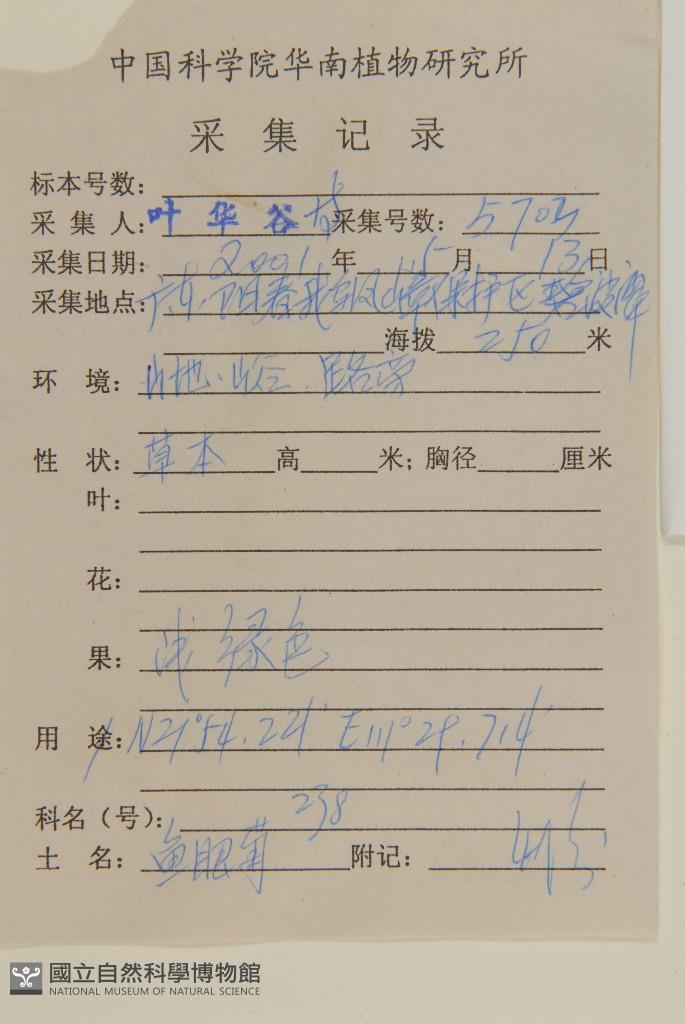 中国科学院华南植物研究所
采集记录
标本号数：
采集人：叶华谷 采集号数：5703
采集日期：2001年5月13日
采集地点：广东.阳春鹅凰嶂保护区
海拨250米
环境：山地.山谷.路旁
性状：草本 高 米；胸径 厘米
叶：
花：
果：浅绿色
用途：N21°54.221′ E111°29.714′
科名（号）：238
土名：鱼眼菊 附记：
國立自然科學博物館
NATIONAL MUSEUM OF NATURAL SCIENCE